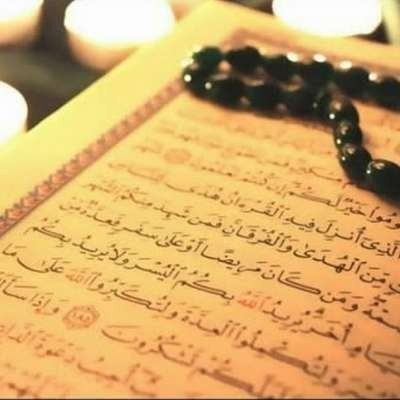 خَيْرٌ لَكُمْ إِنْ كُنْتُمْ
الَّذِي أُنْزِلَ فِيهِ الْقُرْءَانُ هُدًى
مِنَ الْهُدَى وَالْفُرْقَانِ فَمَنْ شَهِدَ مِنْكُمُ الشَّهْرَ
وَمَنْ كَانَ مَرِيضًا أَوْ عَلَى سَفَرٍ فَعِدَّةٌ مِنْ
أُخَرَ يُرِيدُ اللَّهُ بِكُمُ الْيُسْرَ وَلَا يُرِيدُ بِكُمُ
وَلِتُكْمِلُوا الْعِدَّةَ وَلِتُكَبِّرُوا اللَّهَ عَلَى مَا
وَلَعَلَّكُمْ تَشْكُرُونَ ١٨٥ وَإِذَا
أُجِيبُ دَعْوَةَ الدَّاعِ